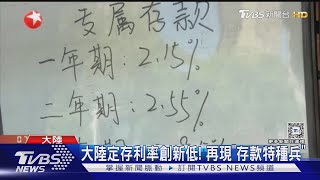 专属存款
一年期：2.15%
二年期：2.55%
TVBS新聞台 HD
大陸
大陸定存利率創新低! 再現"存款特種兵"
TVBS NEWS
掌握新聞脈動 ▸ 訂閱TVBS NEWS頻道